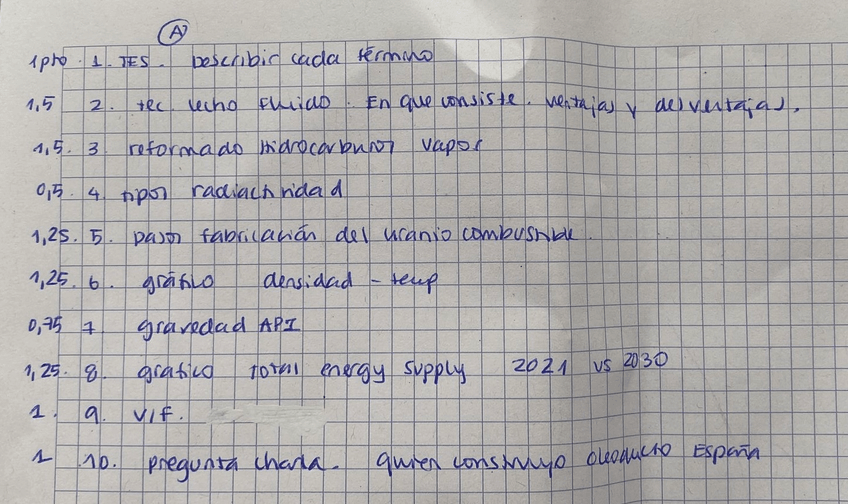 A
1pto. 1. TES. Describir cada término
1,5 2. tec. lecho fluido. En que consiste. ventajas y desventajas.
1,5. 3. reformado Hidrocarburos vapor
0,5. 4 tipos radiactividad
1,25. 5. pasos fabricación del uranio combustible
1,25. 6. gráfico densidad - temp
0,75 7 gravedad API
1,25. 8. grafico total energy supply 2021 vs 2030
1. 9. V/F.
1 10. pregunta charla. quien construyo oleoducto España